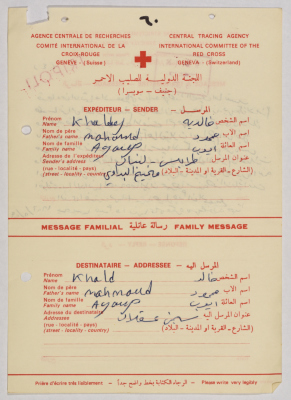 AGENCE CENTRALE DE RECHERCHES
COMITÉ INTERNATIONAL DE LA
CROIX-ROUGE
GENÈVE - (Suisse)
CENTRAL TRACING AGENCY
INTERNATIONAL COMMITTEE OF THE
RED CROSS
GENEVA - (Switzerland)
اللجنة الدولية للصليب الاحمر
(جنيف - سويسرا)
EXPEDITEUR - SENDER - المرسل
Prénom
Name
اسم الشخص
Nom de père
Father's name mahmoud محمود اسم الاب
Nom de famille
Family name Ayoup ايوب اسم العائلة
Adresse de l'expéditeur
Sender's address طرابلس - لبنان عنوان المرسل
(rue - localité - pays)
(street - locality - country) مخيم البداوي (الشارع - القرية او المدينة - البلاد)
MESSAGE FAMILIAL رسالة عائلية FAMILY MESSAGE
DESTINATAIRE - ADDRESSEE - المرسل اليه
Prénom
Name Khald خالد اسم الشخص
Nom de père
Father's name mahmoud محمود اسم الاب
Nom de famille
Family name Ayoup ايوب اسم العائلة
Adresse du destinataire
Addresses سجن عسقلان عنوان المرسل اليه
(rue - localité - pays)
(street - locality - country) (الشارع - القرية او المدينة - البلاد)
Prière d'écrire très lisiblement - الرجاء الكتابة بخط واضح جداً - Please write very legibly